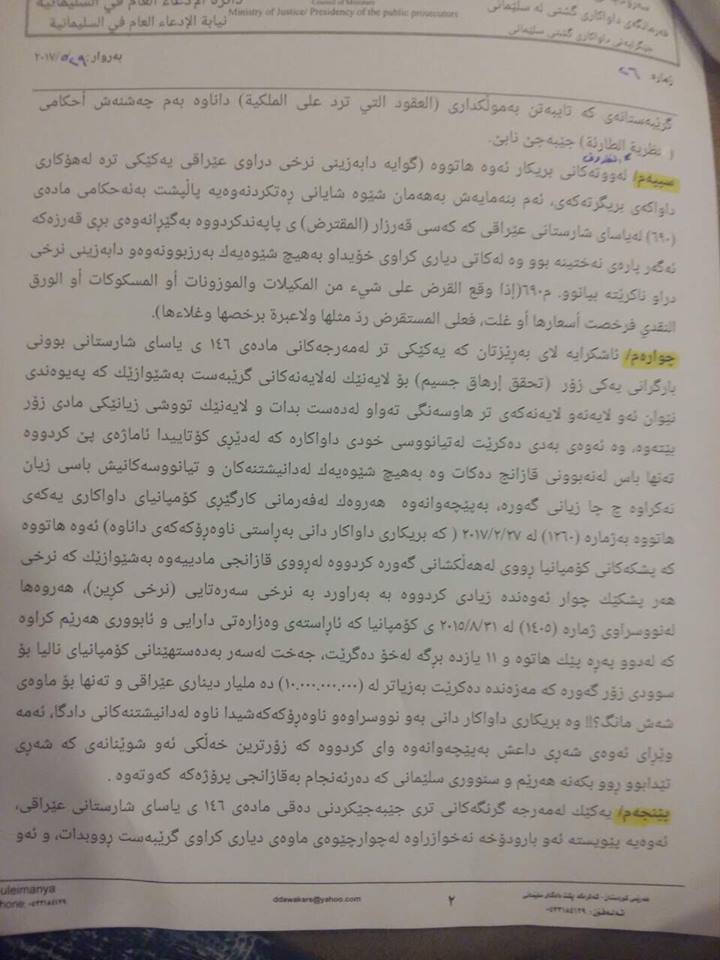 دائرة الإدعاء العام في السليمانية
نيابة الإدعاء العام في السليمانية
Council of Ministers
Ministry of Justice/ Presidency of the public prosecutors
فەرمانگەی داواکاری گشتی لە سلێمانی
جێگرایەتی داواکاری گشتی سلێمانی
ژمارە: ٢٦
بەروار: ٢٩/٥/٢٠١٧
گرێبەستانەی کە تایبەتن بەموڵکداری (العقود التي ترد على الملكية) داناوە بەم چەشنەش أحکامی
( نظرية الطارئة) جێبەجێ نابێ.
الظروف
سییەم/ لەووتەکانی بریکار ئەوە هاتووە (گوایە دابەزینی نرخی دراوی عێراقی یەکێکی ترە لەهۆکاری
داواکەی بریگرتەکەی، ئەم بنەمایەش بەهەمان شێوە شایانی ڕەتکردنەوەیە پاڵپشت بەئەحکامی مادەی
(٦٩٠) لەیاسای شارستانی عێراقی کە کەسی قەرزار (المقترض) ی پابەندکردووە بەگێڕانەوەی بڕی قەرزەکە
ئەگەر پارەی نەختینە بوو وە لەکاتی دیاری کراوی خۆیداو بەهیچ شێوەیەك بەرزبوونەوەو دابەزینی نرخی
دراو ناکرێتە بیانوو. م٦٩٠(إذا وقع القرض على شيء من المكيلات والموزونات أو المسكوكات أو الورق
النقدي فرخصت أسعارها أو غلت، فعلى المستقرض رد مثلها ولاعبرة برخصها وغلاءها).
چوارەم/ ئاشکرایە لای بەڕێزتان کە یەکێکی تر لەمەرجەکانی مادەی ١٤٦ ی یاسای شارستانی بوونی
بارگرانی یەکی زۆر (تحقق إرهاق جسيم) بۆ لایەنێك لەلایەنەکانی گرێبەست بەشێوازێك کە پەیوەندی
نێوان ئەو لایەنەو لایەنەکەی تر هاوسەنگی تەواو لەدەست بدات و لایەنێك تووشی زیانێکی مادی زۆر
بێتەوە، وە ئەوەی بەدی دەکرێت لەتیانووسی خودی داواکارە کە لەدێڕی کۆتاییدا ئاماژەی پێ کردووە
تەنها باس لەنەبوونی قازانج دەکات وە بەهیچ شێوەیەك لەدانیشتنەکان و تیانووسەکانیش باسی زیان
نەکراوە چ جا زیانی گەورە، بەپێچەوانەوە هەروەك لەفەرمانی کارگێڕی کۆمپانیای داواکاری یەکەی
هاتووە بەژمارە (١٢٦٠) لە ٢٠١٧/٢/٢٧ ( کە بریکاری داواکار دانی بەڕاستی ناوەڕۆکەکەی داناوە) ئەوە هاتووە
کە پشکەکانی کۆمپانیا ڕووی لەهەڵکشانی گەورە کردووە لەڕووی قازانجی مادییەوە بەشێوازێك کە نرخی
هەر پشکێك چوار ئەوەندە زیادی کردووە بە بەراورد بە نرخی سەرەتایی (نرخی کڕین)، هەروەها
لەنووسراوی ژمارە (١٤٠٥) لە ٢٠١٥/٨/٣١ ی کۆمپانیا کە ئاراستەی وەزارەتی دارایی و ئابووری هەرێم کراوە
کە لەدوو پەڕە پێك هاتوە و ١١ یازدە بڕگە لەخۆ دەگرێت، جەخت لەسەر بەدەستهێنانی کۆمپانیای نالیا بۆ
سوودی زۆر گەورە کە مەزەندە دەکرێت بەزیاتر لە (١٠.٠٠٠.٠٠٠.٠٠٠) دە ملیار دیناری عێراقی و تەنها بۆ ماوەی
شەش مانگ؟!! وە بریکاری داواکار دانی بەو نووسراوەو ناوەڕۆکەکەشیدا ناوە لەدانیشتنەکانی دادگا، ئەمە
وێڕای ئەوەی شەڕی داعش بەپێچەوانەوە وای کردووە کە زۆرترین خەڵکی ئەو شوێنانەی کە شەڕی
تێدابوو ڕوو بکەنە هەرێم و سنووری سلێمانی کە دەرئەنجام بەقازانجی پرۆژەکە کەوتەوە .
پێنجەم/ یەکێك لەمەرجە گرنگەکانی تری جێبەجێکردنی دەقی مادەی ١٤٦ ی یاسای شارستانی عێراقی،
ئەوەیە پێویستە ئەو بارودۆخە نەخوازراوە لەچوارچێوەی ماوەی دیاری کراوی گرێبەست ڕووبدات، و ئەو
uleimanya
hone: ٠٥٣٣١٨٤١٢٩
ddawakars@yahoo.com
٢
هەرێمی کوردستان - شەقامی پشت دادگای سلێمانی
تەلەفۆن: ٠٥٣٣١٨٤١٢٩